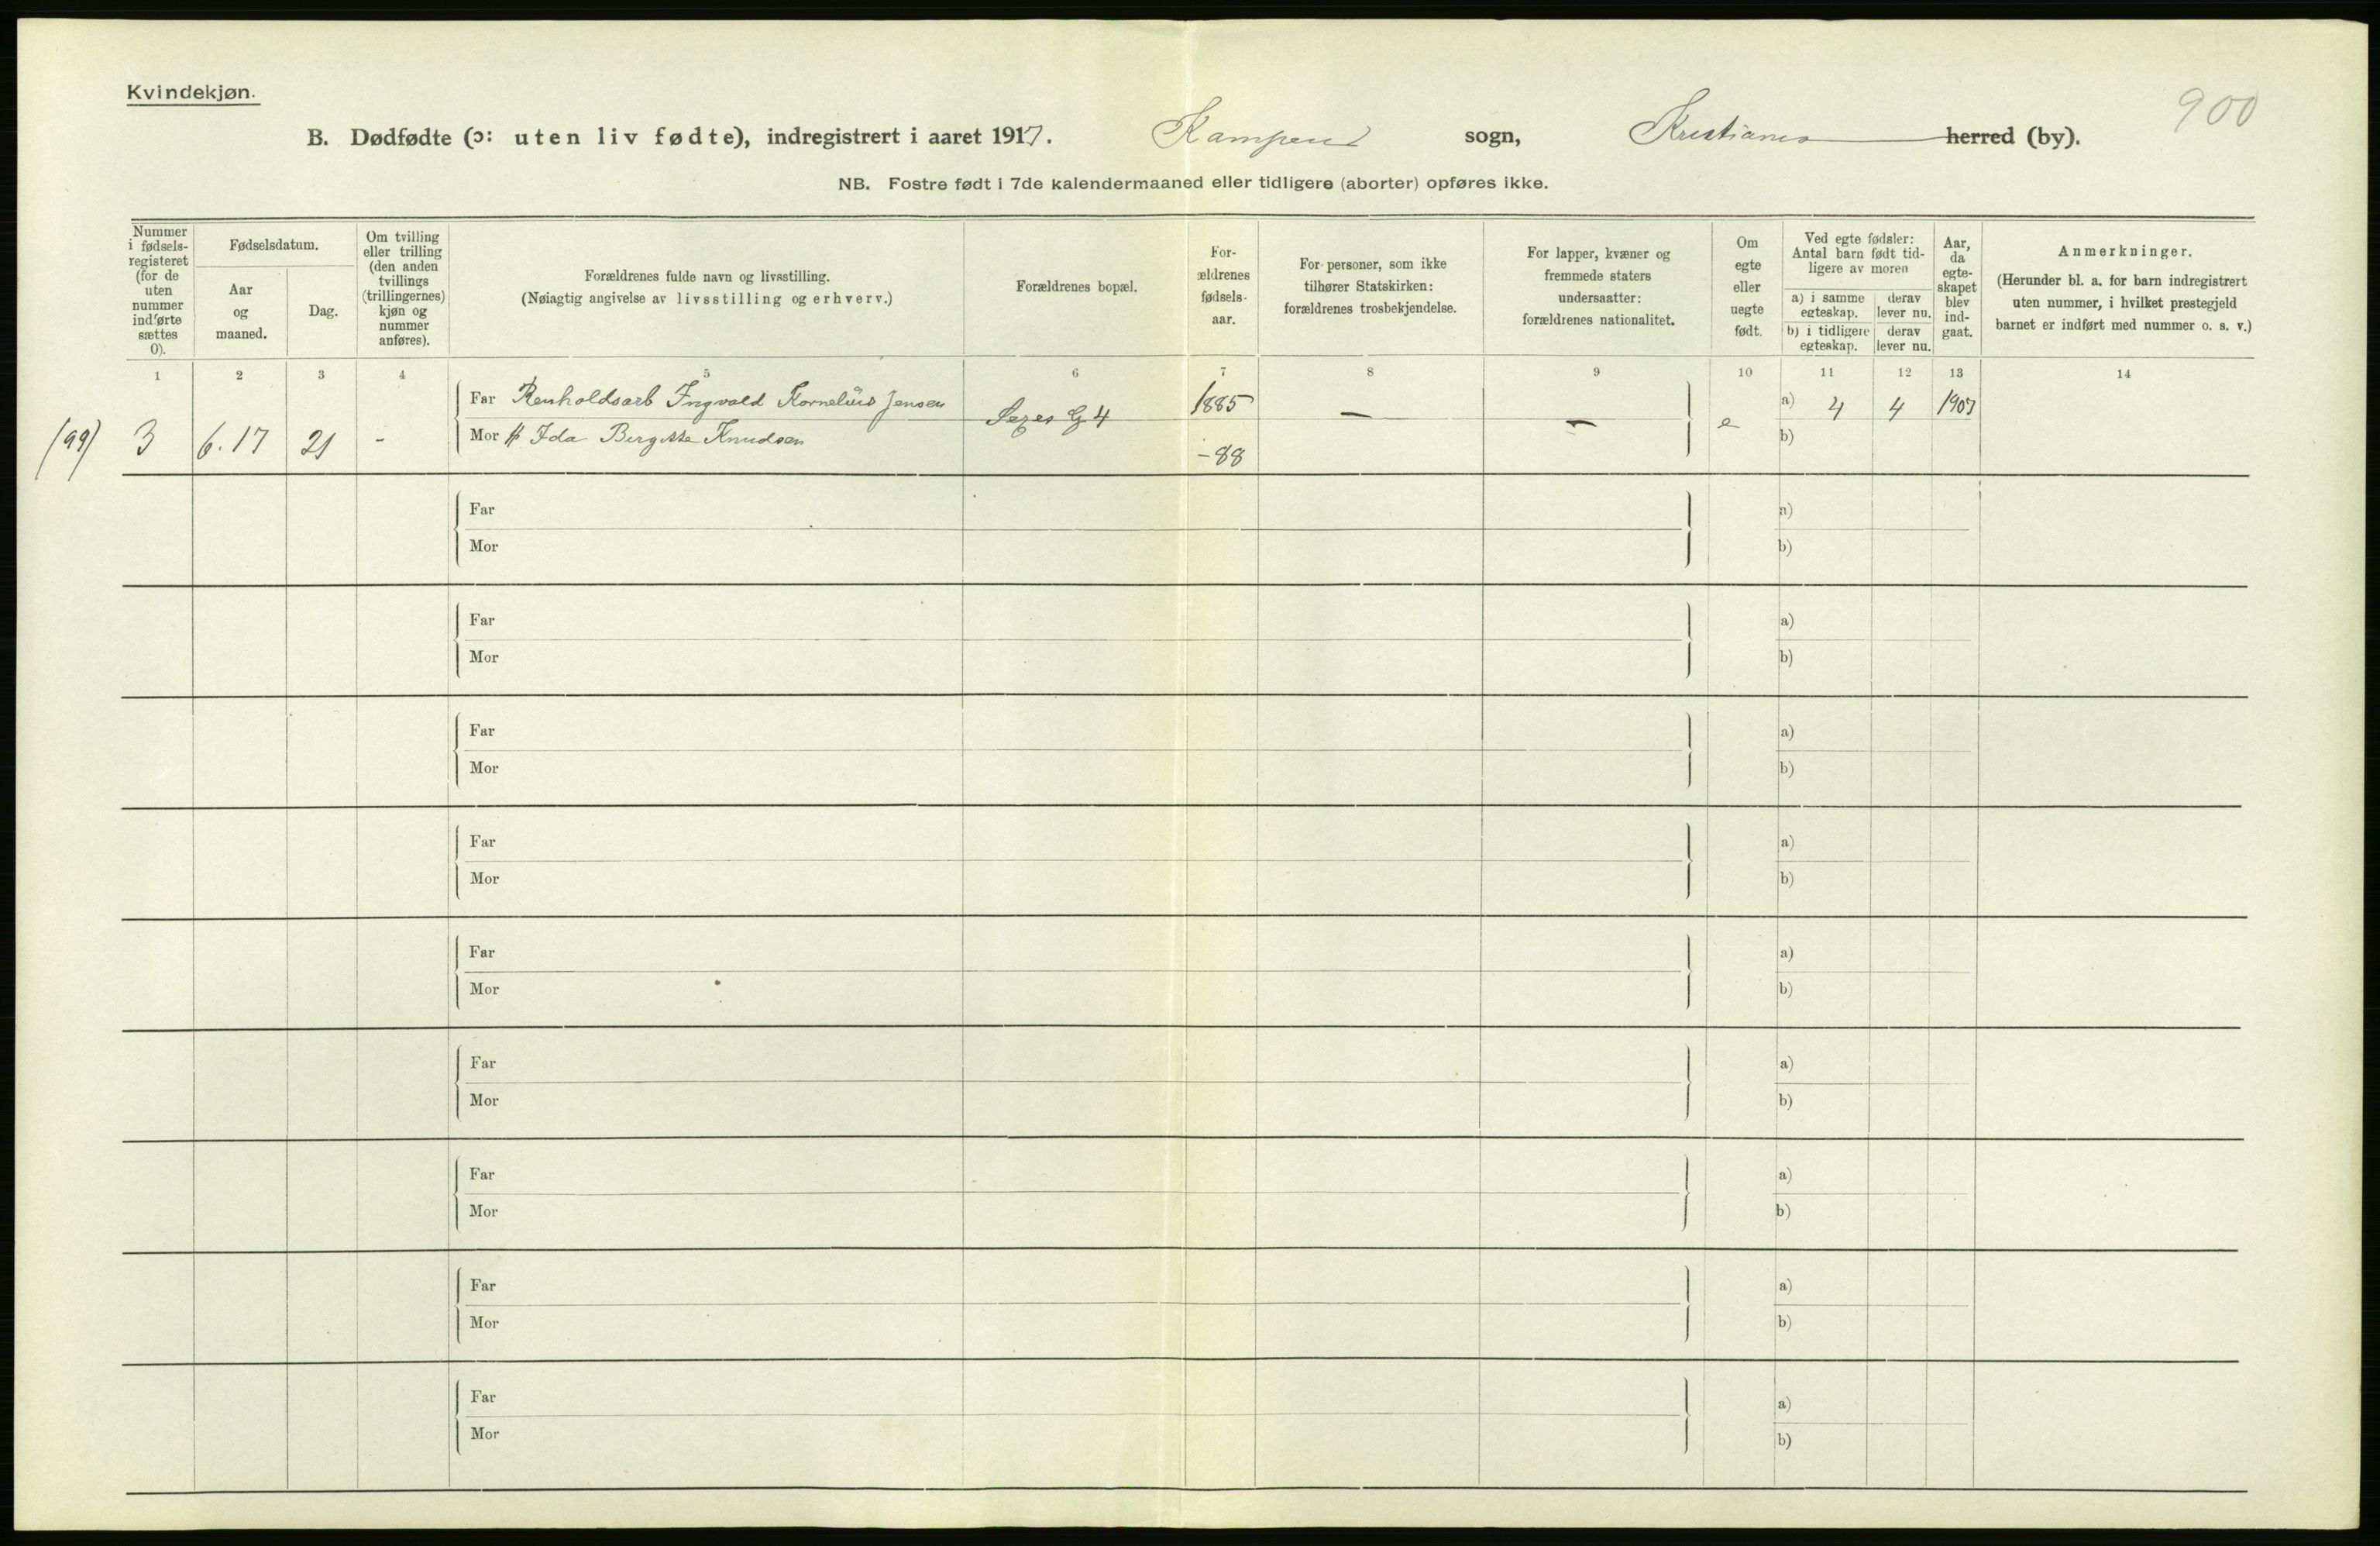 Kvindekjøn.
900
B. Dødfødte (ɔ: uten liv fødte), indregistrert i aaret 1917. Kampens sogn, Kristiania herred (by).
NB. Fostre født i 7de kalendermaaned eller tidligere (aborter) opføres ikke.
Nummer i fødsels-registeret (for de uten nummer indførte sættes 0).
Fødselsdatum.
Aar og maaned.
Dag.
Om tvilling eller trilling (den anden tvillings (trillingernes) kjøn og nummer anføres).
Forældrenes fulde navn og livsstilling.
(Nøiagtig angivelse av livsstilling og erhverv.)
Forældrenes bopæl.
For-ældrenes fødsels-aar.
For personer, som ikke tilhører Statskirken: forældrenes trosbekjendelse.
For lapper, kvæner og fremmede staters undersaatter: forældrenes nationalitet.
Om egte eller uegte født.
Ved egte fødsler: Antal barn født tid-ligere av moren
a) i samme egteskap.
derav lever nu.
b) i tidligere egteskap.
derav lever nu.
Aar, da egte-skapet blev ind-gaat.
Anmerkninger.
(Herunder bl. a. for barn indregistrert uten nummer, i hvilket prestegjeld barnet er indført med nummer o. s. v.)
1 2 3 4 5 6 7 8 9 10 11 12 13 14
Far Renholdsarb Ingvald Kornelius Jensen G 4 1885 — a) 4 4 1907
(99) 3 6.17 21 - Mor H Ida Birgitte Knudsen - 88 — e b)
Far a)
Mor b)
Far a)
Mor b)
Far a)
Mor b)
Far a)
Mor b)
Far a)
Mor b)
Far a)
Mor b)
Far a)
Mor b)
Far a)
Mor b)
Far a)
Mor b)